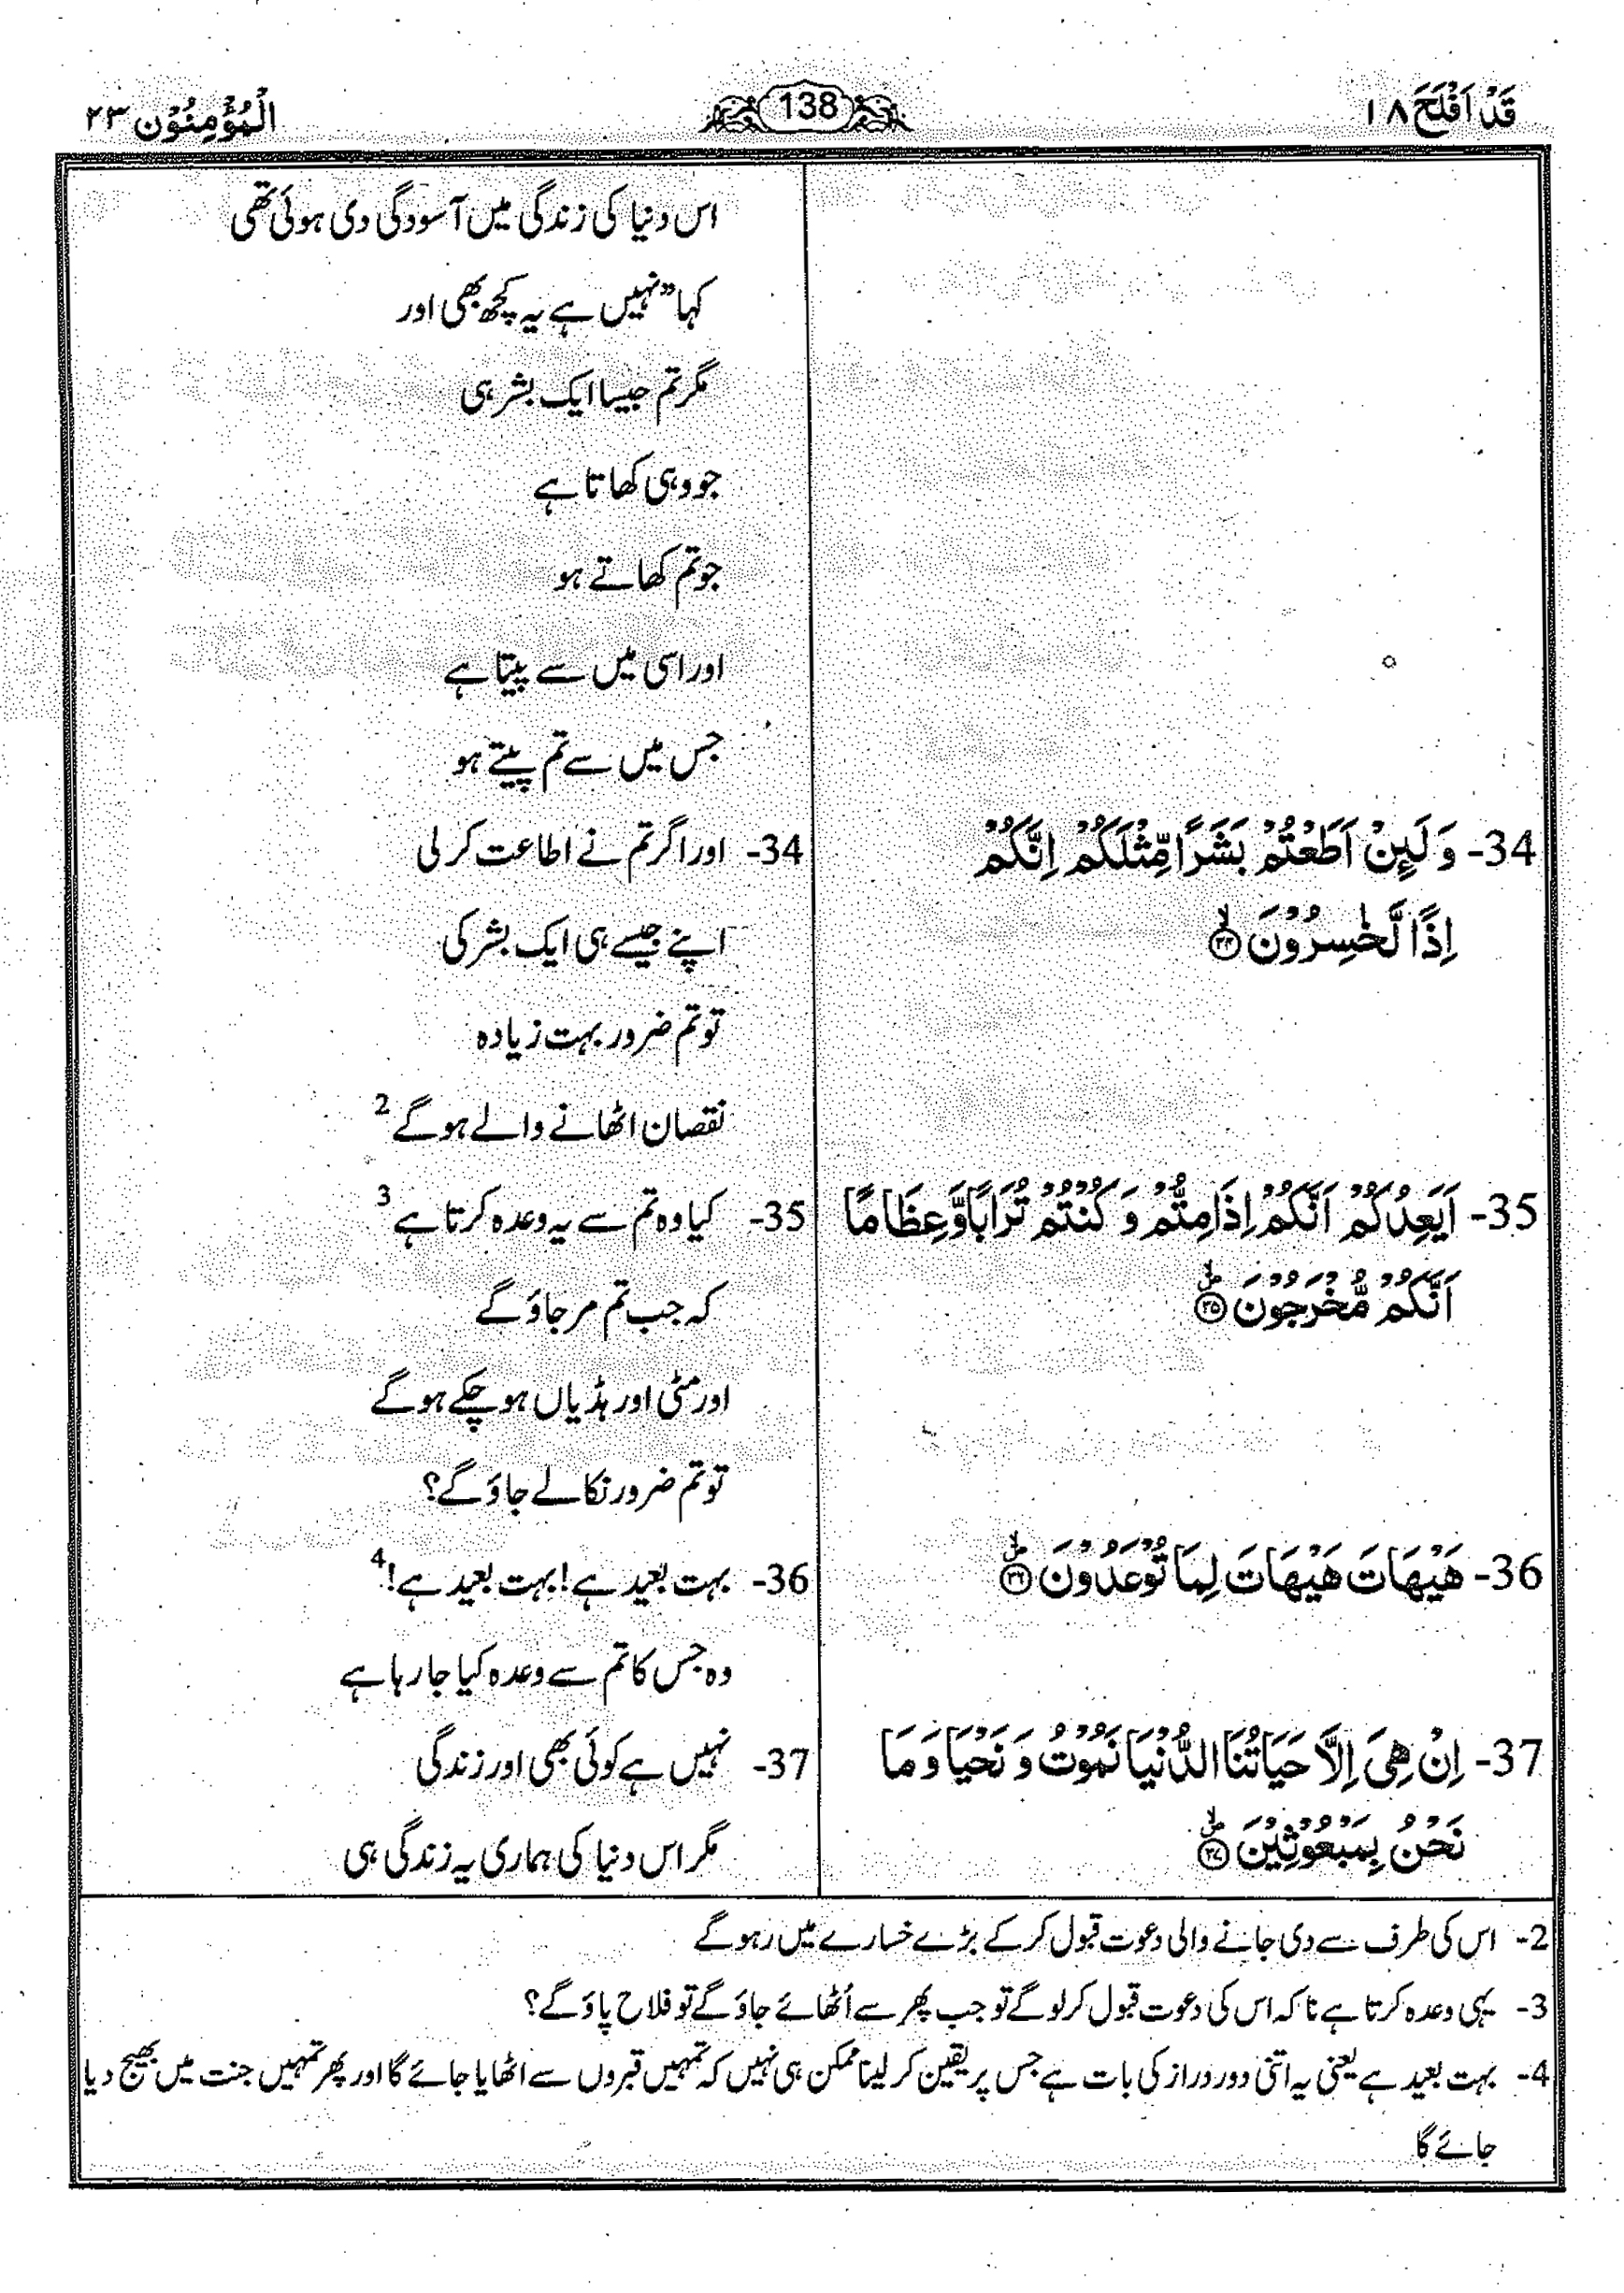 قَدْ اَفْلَحَ ۱۸
138
الْمُؤْمِنُوْن ۲۳
اس دنیا کی زندگی میں آسودگی دی ہوئی تھی
کہا ”نہیں ہے یہ کچھ بھی اور
مگر تم جیسا ایک بشر ہی
جو وہی کھاتا ہے
جو تم کھاتے ہو
اور اسی میں سے پیتا ہے
جس میں سے تم پیتے ہو
34- وَلَىِٕنْ اَطَعْتُمْ بَشَرًا مِّثْلَكُمْ اِنَّكُمْ
اِذًا لَّخٰسِرُوْنَ ۙ۳۴
34- اور اگر تم نے اطاعت کر لی
اپنے جیسے ہی ایک بشر کی
تو تم ضرور بہت زیادہ
نقصان اٹھانے والے ہو گے 2
35- اَيَعِدُكُمْ اَنَّكُمْ اِذَا مِتُّمْ وَ كُنْتُمْ تُرَابًا وَّعِظَامًا
اَنَّكُمْ مُّخْرَجُوْنَ ۪ۙ۳۵
35- کیا وہ تم سے یہ وعدہ کرتا ہے 3
کہ جب تم مر جاؤ گے
اور مٹی اور ہڈیاں ہو چکے ہو گے
تو تم ضرور نکالے جاؤ گے؟
36- هَيْهَاتَ هَيْهَاتَ لِمَا تُوْعَدُوْنَ ۪ۙ۳۶
36- بہت بعید ہے! بہت بعید ہے! 4
وہ جس کا تم سے وعدہ کیا جا رہا ہے
37- اِنْ هِىَ اِلَّا حَيَاتُنَا الدُّنْيَا نَمُوْتُ وَ نَحْيَا وَ مَا
نَحْنُ بِمَبْعُوْثِيْنَ ۪ۙ۳۷
37- نہیں ہے کوئی بھی اور زندگی
مگر اس دنیا کی ہماری یہ زندگی ہی
2- اس کی طرف سے دی جانے والی دعوت قبول کر کے بڑے خسارے میں رہو گے
3- یہی وعدہ کرتا ہے نا کہ اس کی دعوت قبول کر لو گے تو جب پھر سے اُٹھائے جاؤ گے تو فلاح پاؤ گے؟
4- بہت بعید ہے یعنی یہ اتنی دور دراز کی بات ہے جس پر یقین کر لینا ممکن ہی نہیں کہ تمہیں قبروں سے اٹھایا جائے گا اور پھر تمہیں جنت میں بھیج دیا
جائے گا